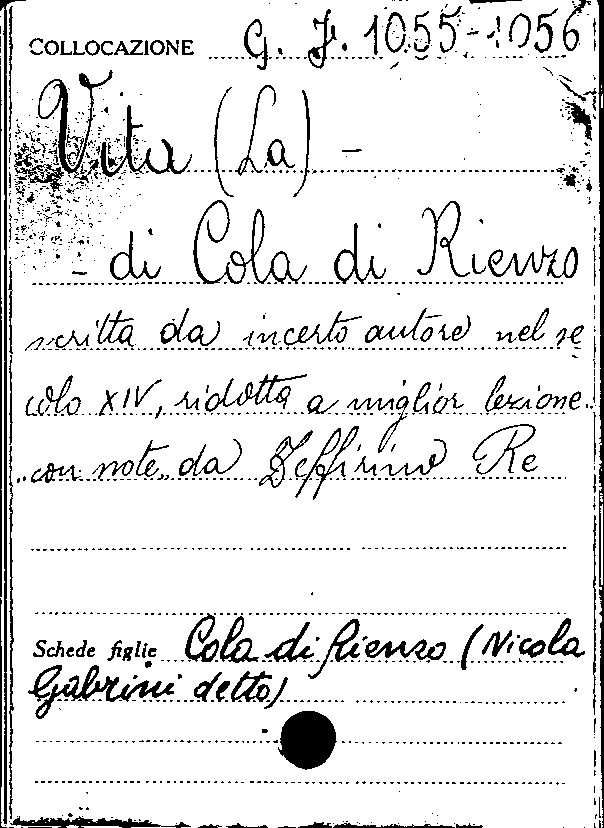 COLLOCAZIONE G. J. 1055-1056
Vita (La) -
- di Cola di Rienzo
scritta da incerto autore nel se
colo XIV, ridotta a miglior lezione
con note da Zeffirino Re
Schede figlie Cola di Rienzo (Nicola
Gabrini detto)